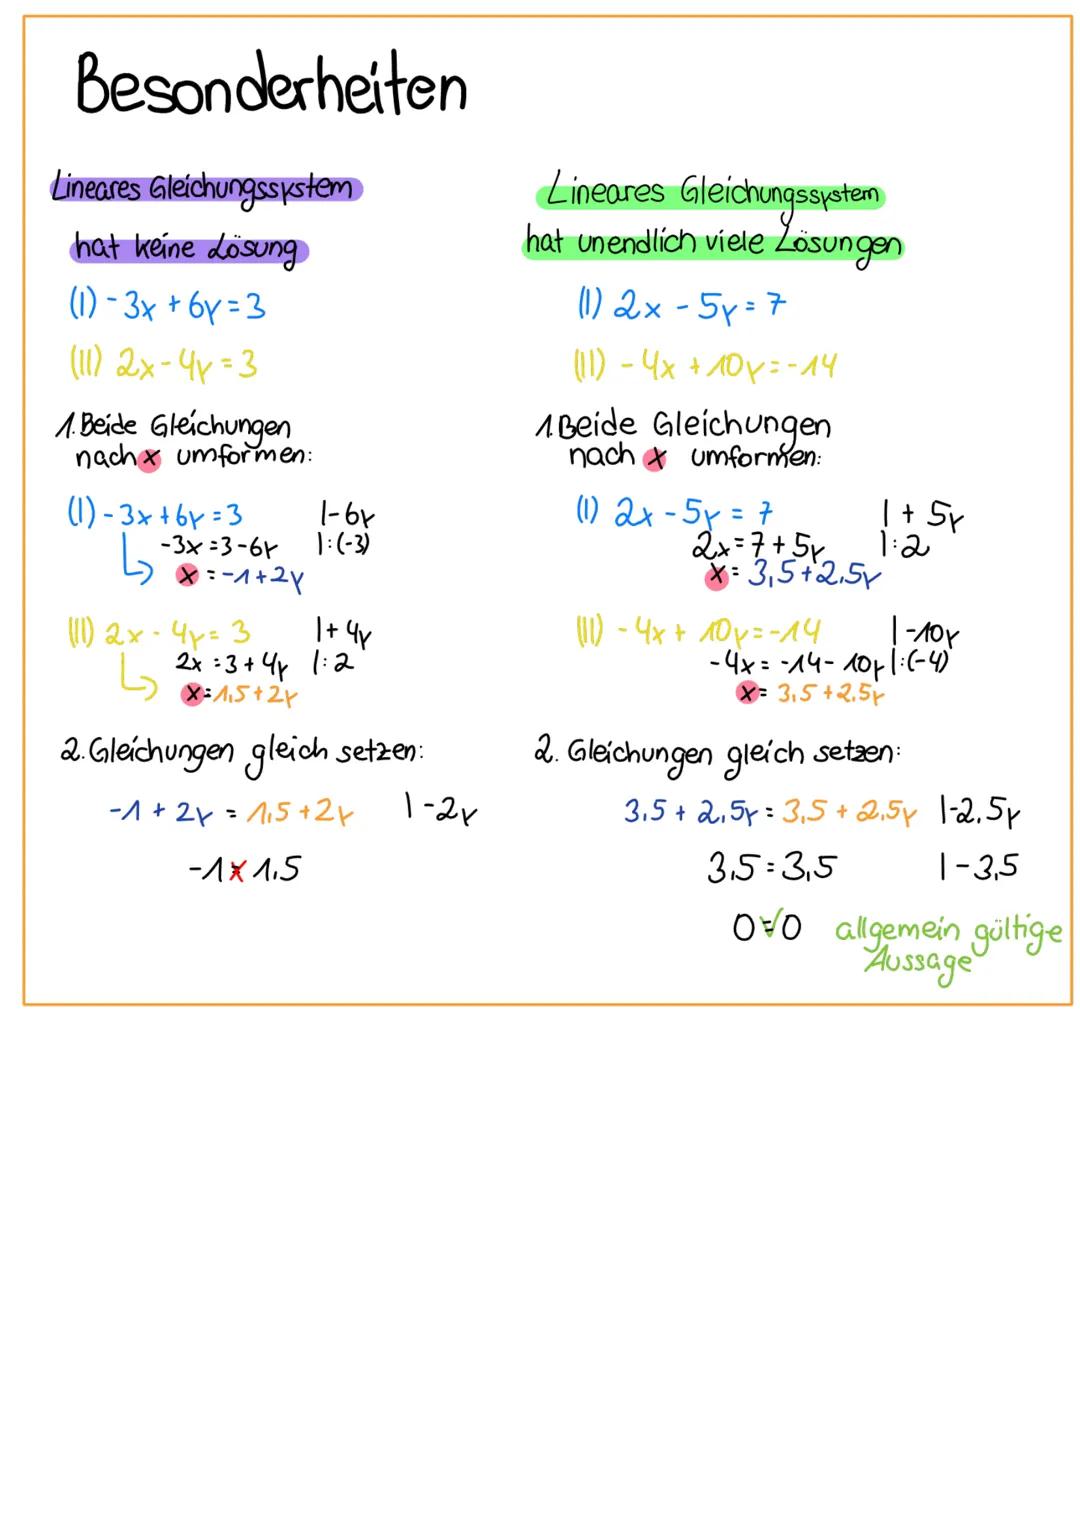 Besonderheiten
Lineares Gleichungssystem
hat keine Lösung
(I) -3x + 6y = 3
(II) 2x - 4y = 3
1. Beide Gleichungen
nach x umformen:
(I) -3x + 6y = 3 |-6y
-3x = 3 - 6y |:(-3)
x = -1 + 2y
(II) 2x - 4y = 3 |+4y
2x = 3 + 4y |:2
x = 1,5 + 2y
2. Gleichungen gleich setzen:
-1 + 2y = 1,5 + 2y |-2y
-1 = 1,5
Lineares Gleichungssystem
hat unendlich viele Lösungen
(I) 2x - 5y = 7
(II) -4x + 10y = -14
1. Beide Gleichungen
nach x umformen:
(I) 2x - 5y = 7 |+ 5y
2x = 7 + 5y |:2
x = 3,5 + 2,5y
(II) -4x + 10y = -14 |-10y
-4x = -14 - 10y |:(-4)
x = 3,5 + 2,5y
2. Gleichungen gleich setzen:
3,5 + 2,5y = 3,5 + 2,5y |-2,5y
3,5 = 3,5 |-3,5
0 = 0 ✓ allgemein gültige
Aussage